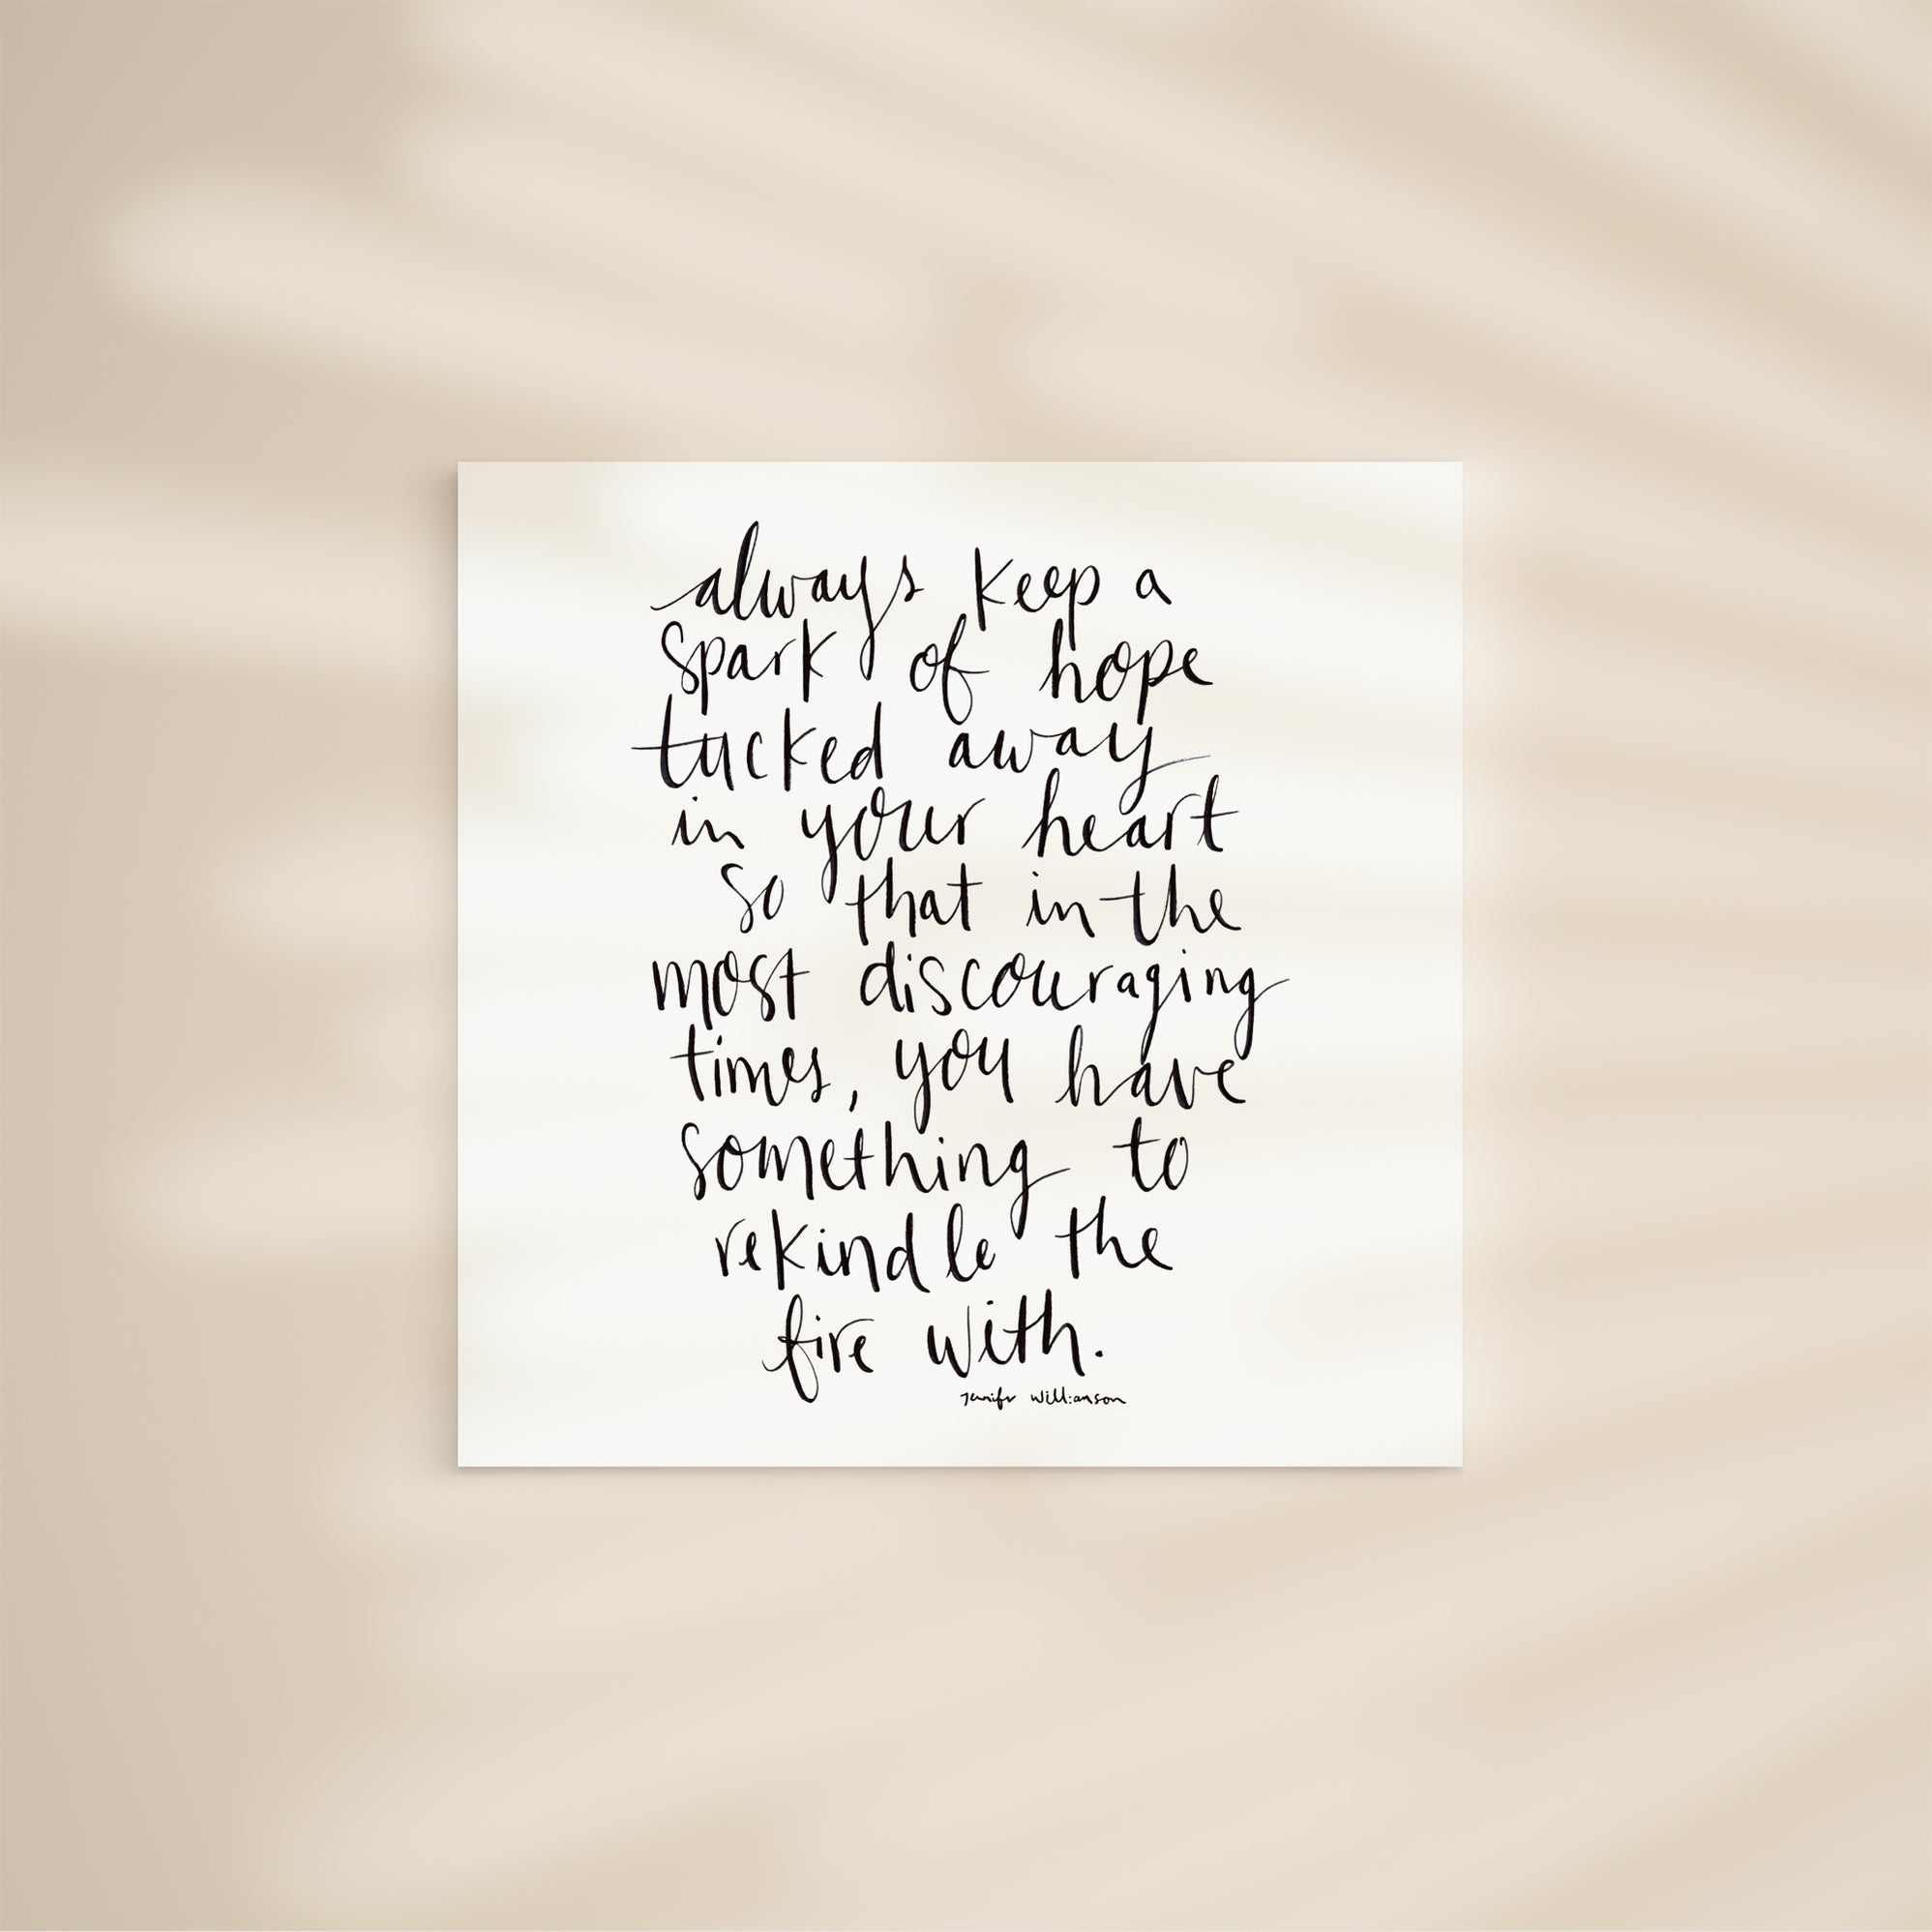 always keep a
spark of hope
tucked away
in your heart
so that in the
most discouraging
times, you have
something to
rekindle the
fire with.
Jennifer Williamson